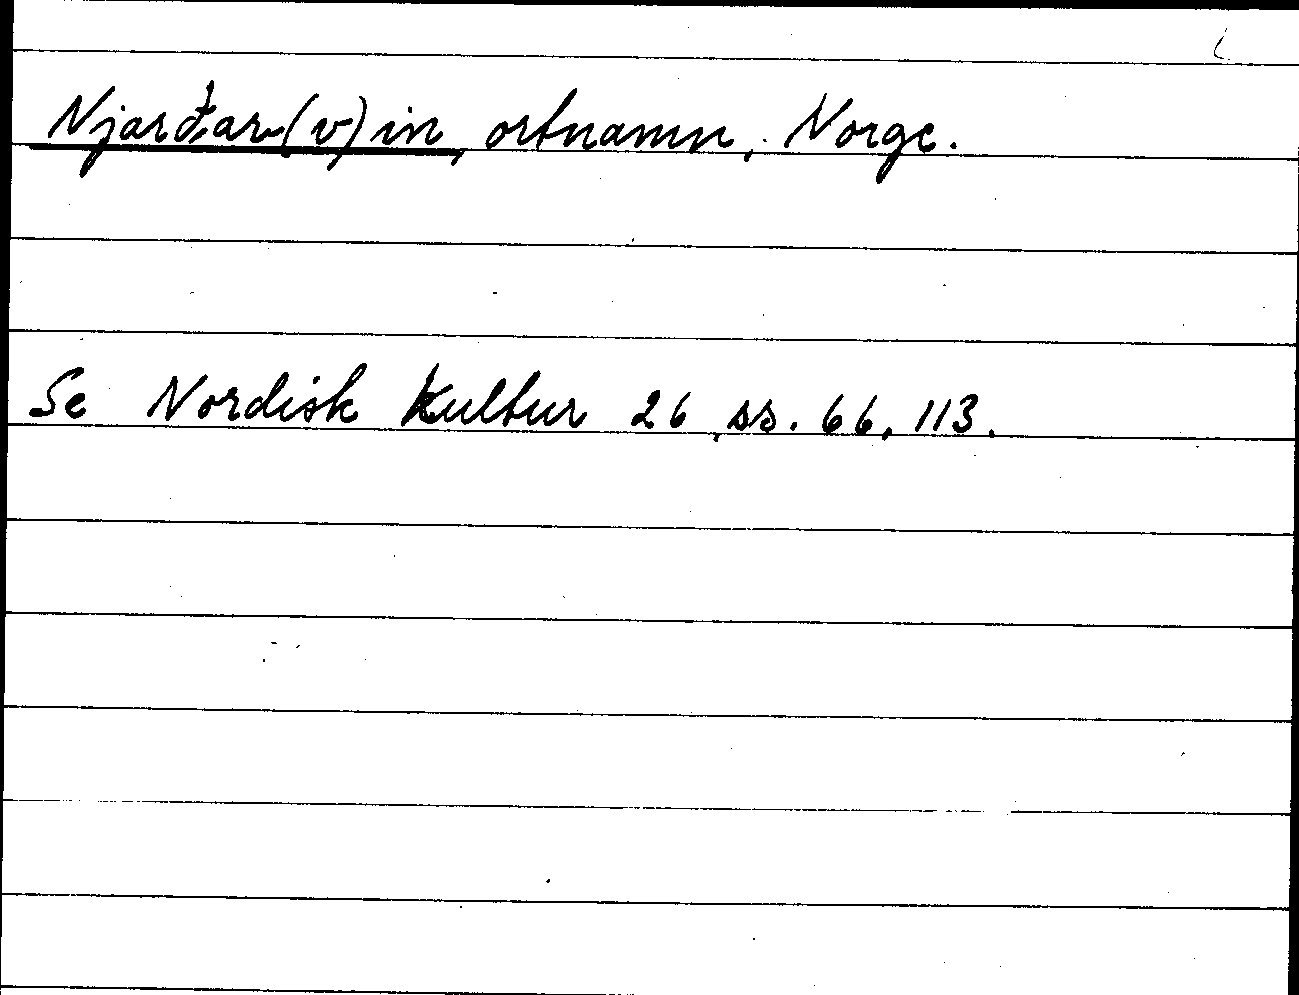 Njarđar(v)in, ortnamn, Norge.
Se Nordisk Kultur 26, ss. 66, 113.